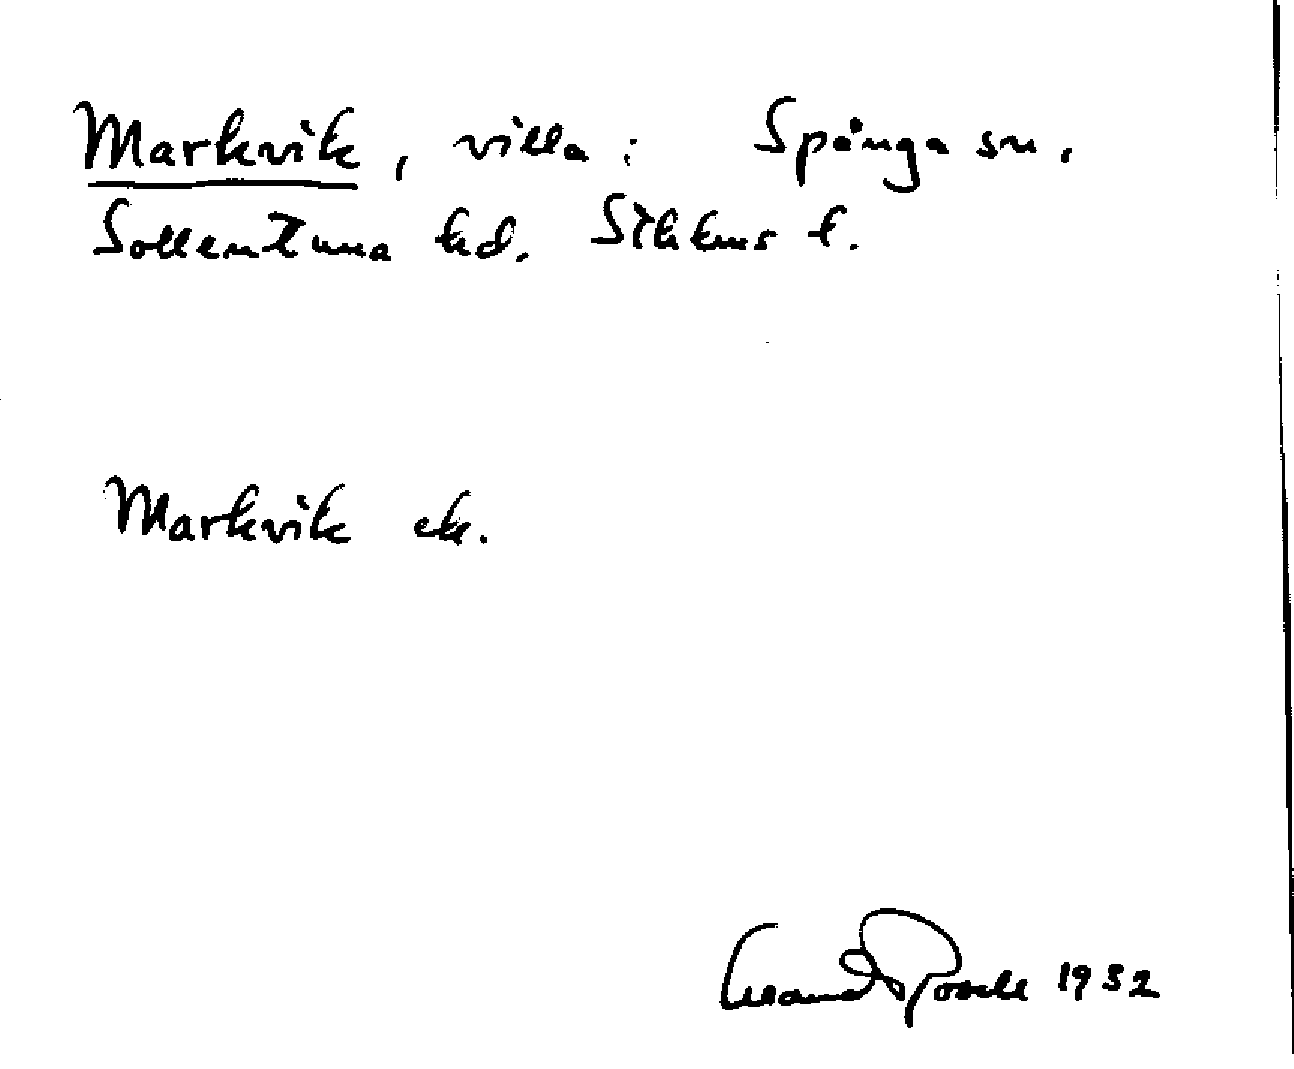 Markvik, villa: Spånga sn.
Sollentuna hd. Sthlms l.
Markvik ek.
1932